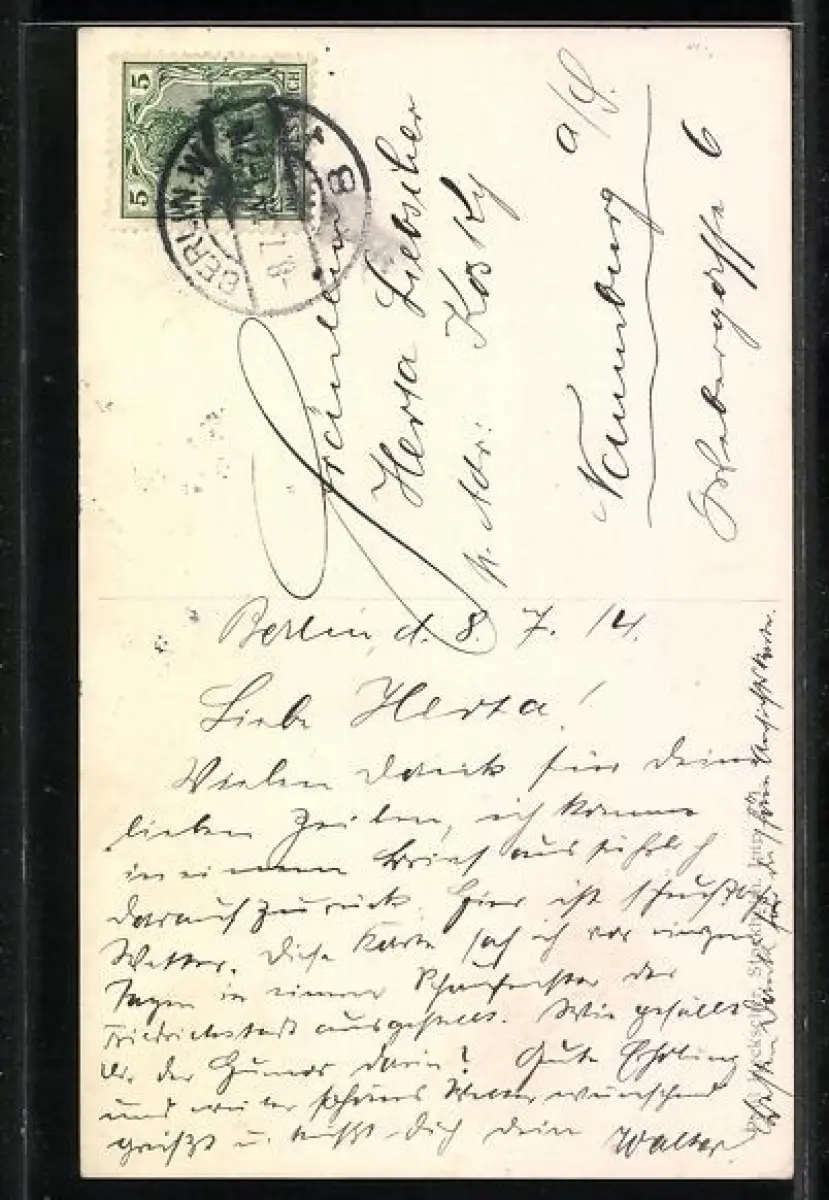 5
5
REICH
BERLIN-W
8
Fräulein
Herta Liebscher
p. Adr: Kosky
Naumburg a/S.
6
Berlin, d. 8. 7. 14.
Liebe Herta!
Vielen Dank für Deine
lieben Zeilen, ich komme
in einem Brief ausführlich
darauf zurück. Hier ist
Wetter. Diese Karte sah ich vor einigen
Tagen in einem Schaufenster der
Friedrichstadt ausgestellt. Wie gefällt
Dir der Humor darin? Gute Erholung
und weiter schönes Wetter wünschend
grüßt u. küßt Dich Dein Walter.
Besten Dank für die schöne Ansichtskarte.